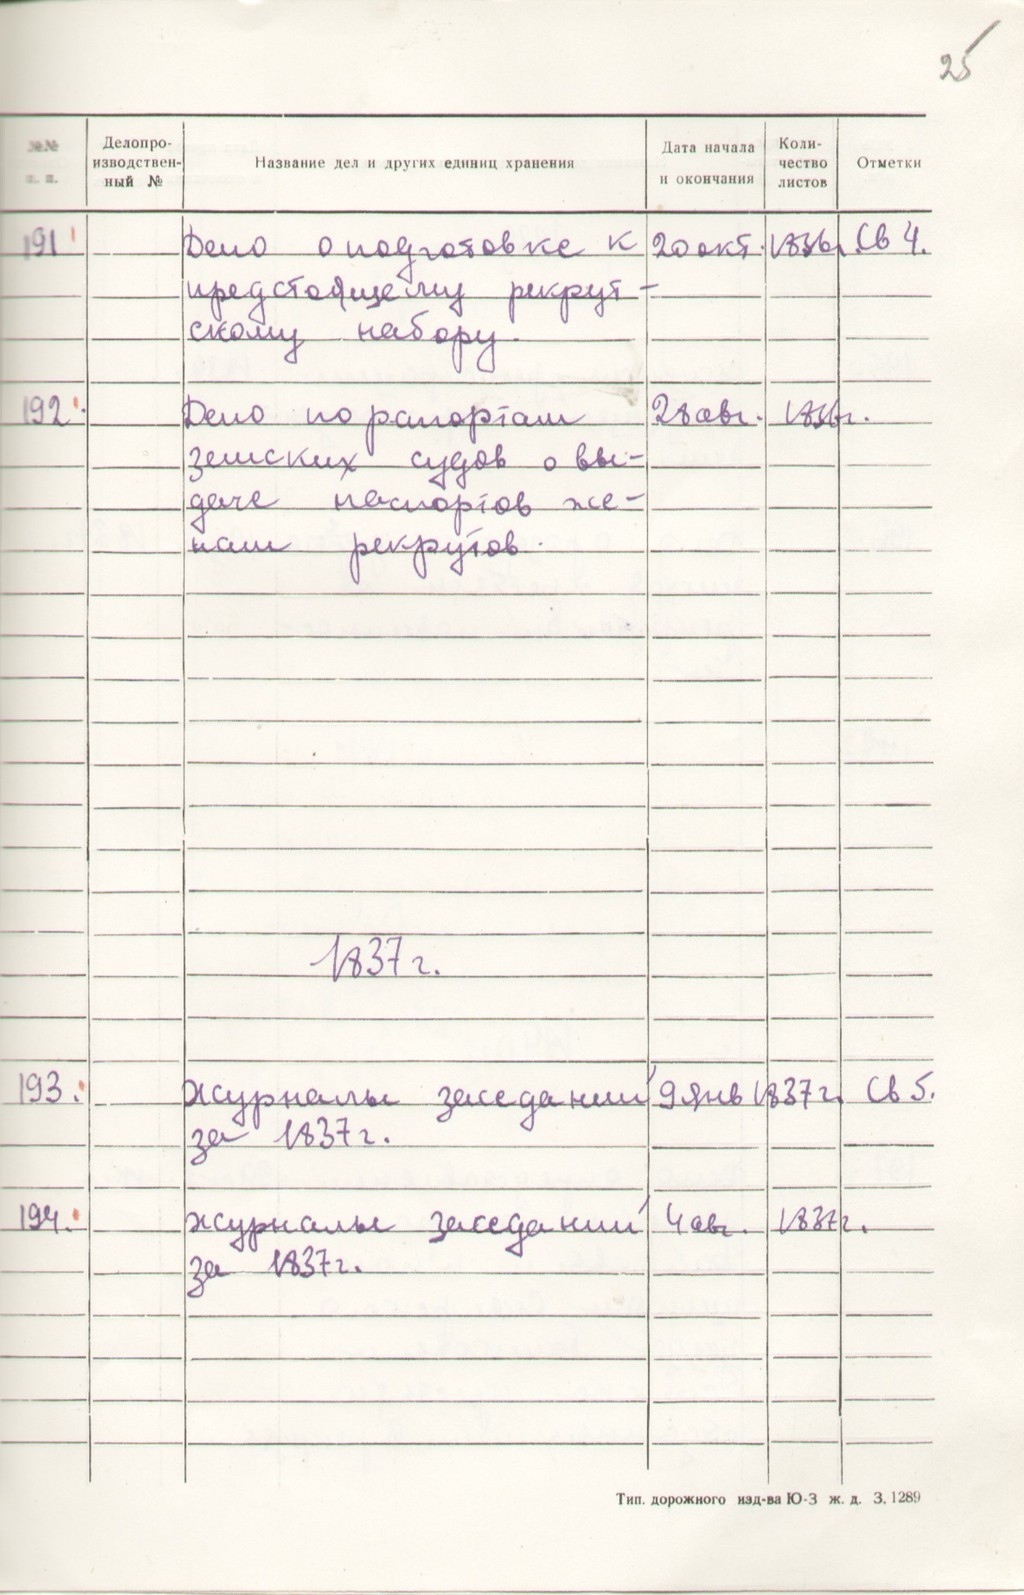 25
№№ п. п.
Делопро-
изводствен-
ный №
Название дел и других единиц хранения
Дата начала
и окончания
Коли-
чество
листов
Отметки
191 Дело о подготовке к 20 окт. 1836г. Св 4.
предстоящему рекрут-
скому набору.
192. Дело по рапортам 28 авг. 1836г.
земских судов о вы-
даче паспортов же-
нам рекрутов.
1837 г.
193. Журналы заседаний 9 янв 1837 г. Св 5.
за 1837 г.
194. Журналы заседаний 4 авг. 1837г.
за 1837 г.
Тип. дорожного изд-ва Ю-З ж. д. З. 1289